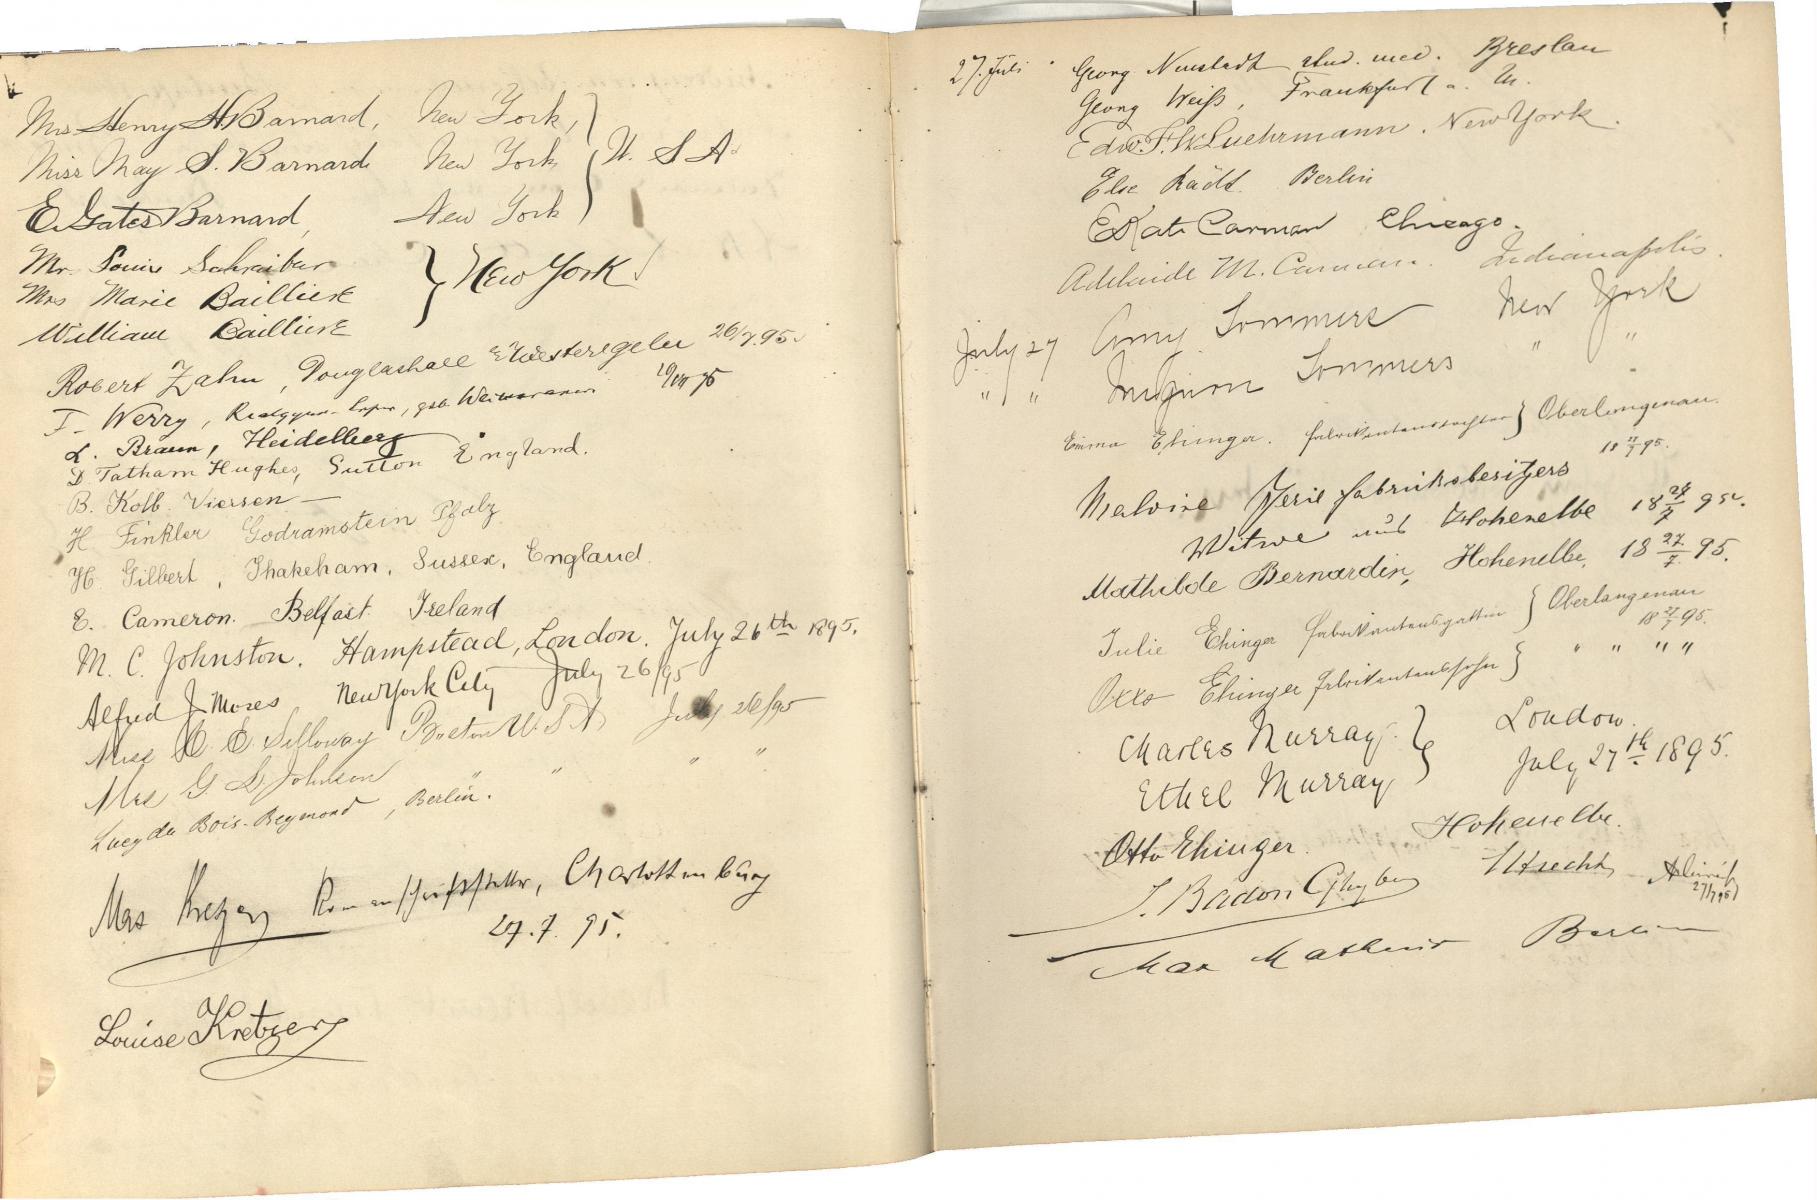 Mrs Henry H. Barnard, New York,
Miss May S. Barnard New York U. S. A.
E. Gates Barnard, New York
Mr. Louis Schreiber
Mrs Marie Baillière New York
William Baillière
Robert Zahn, Douglashall Westeregeln 26/7.95.
F. Werry,
L. Braun, Heidelberg
D. Tatham Hughes, Sutton England.
B. Kolb. Viersen —
H Finkler Godramstein Pfalz
H. Gilbert, Thakeham, Sussex, England.
E. Cameron. Belfast. Ireland
M. C. Johnston. Hampstead, London. July 26th 1895.
Alfred J Moses New York City July 26/95
Miss E. Silloway Boston U.S.A July 26/95
Mrs G. L. Johnson " " " "
Lucy du Bois-Reymond, Berlin.
Max Kretzer Romanschriftsteller, Charlottenburg
27.7.95.
Louise Kretzer
27. Juli Georg Neustadt stud. med. Breslau
Georg Weiß, Frankfurt a. M.
Edw. F. W. Luehrmann. New York.
Else Berlin
E Kate Carman Chicago.
Adelaide M. Carman. Indianapolis.
July 27 Amy Sommers New York
" " Sommers " "
Emma Ehinger. Fabrikantenstochter Oberlangenau.
18 27/7 95.
Malvine Fabriksbesitzers
Witwe aus Hohenelbe 18 27/7 95.
Mathilde Bernardin, Hohenelbe, 18 27/7 95.
Julie Ehinger Fabrikantensgattin Oberlangenau
18 27/7 95.
Otto Ehinger Fabrikantenssohn " " " "
Charles Murray London.
Ethel Murray July 27th 1895.
Otto Ehinger. Hohenelbe.
J. Badon Ghyben Utrecht
27/7 95
Max Berlin